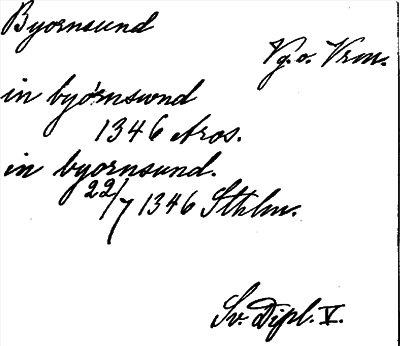 Byornsund
Vg. o. Vrm.
in byórnswnd
1346 Aros.
in byornsund.
22/7 1346 Sthlm.
Sv. Dipl. V.